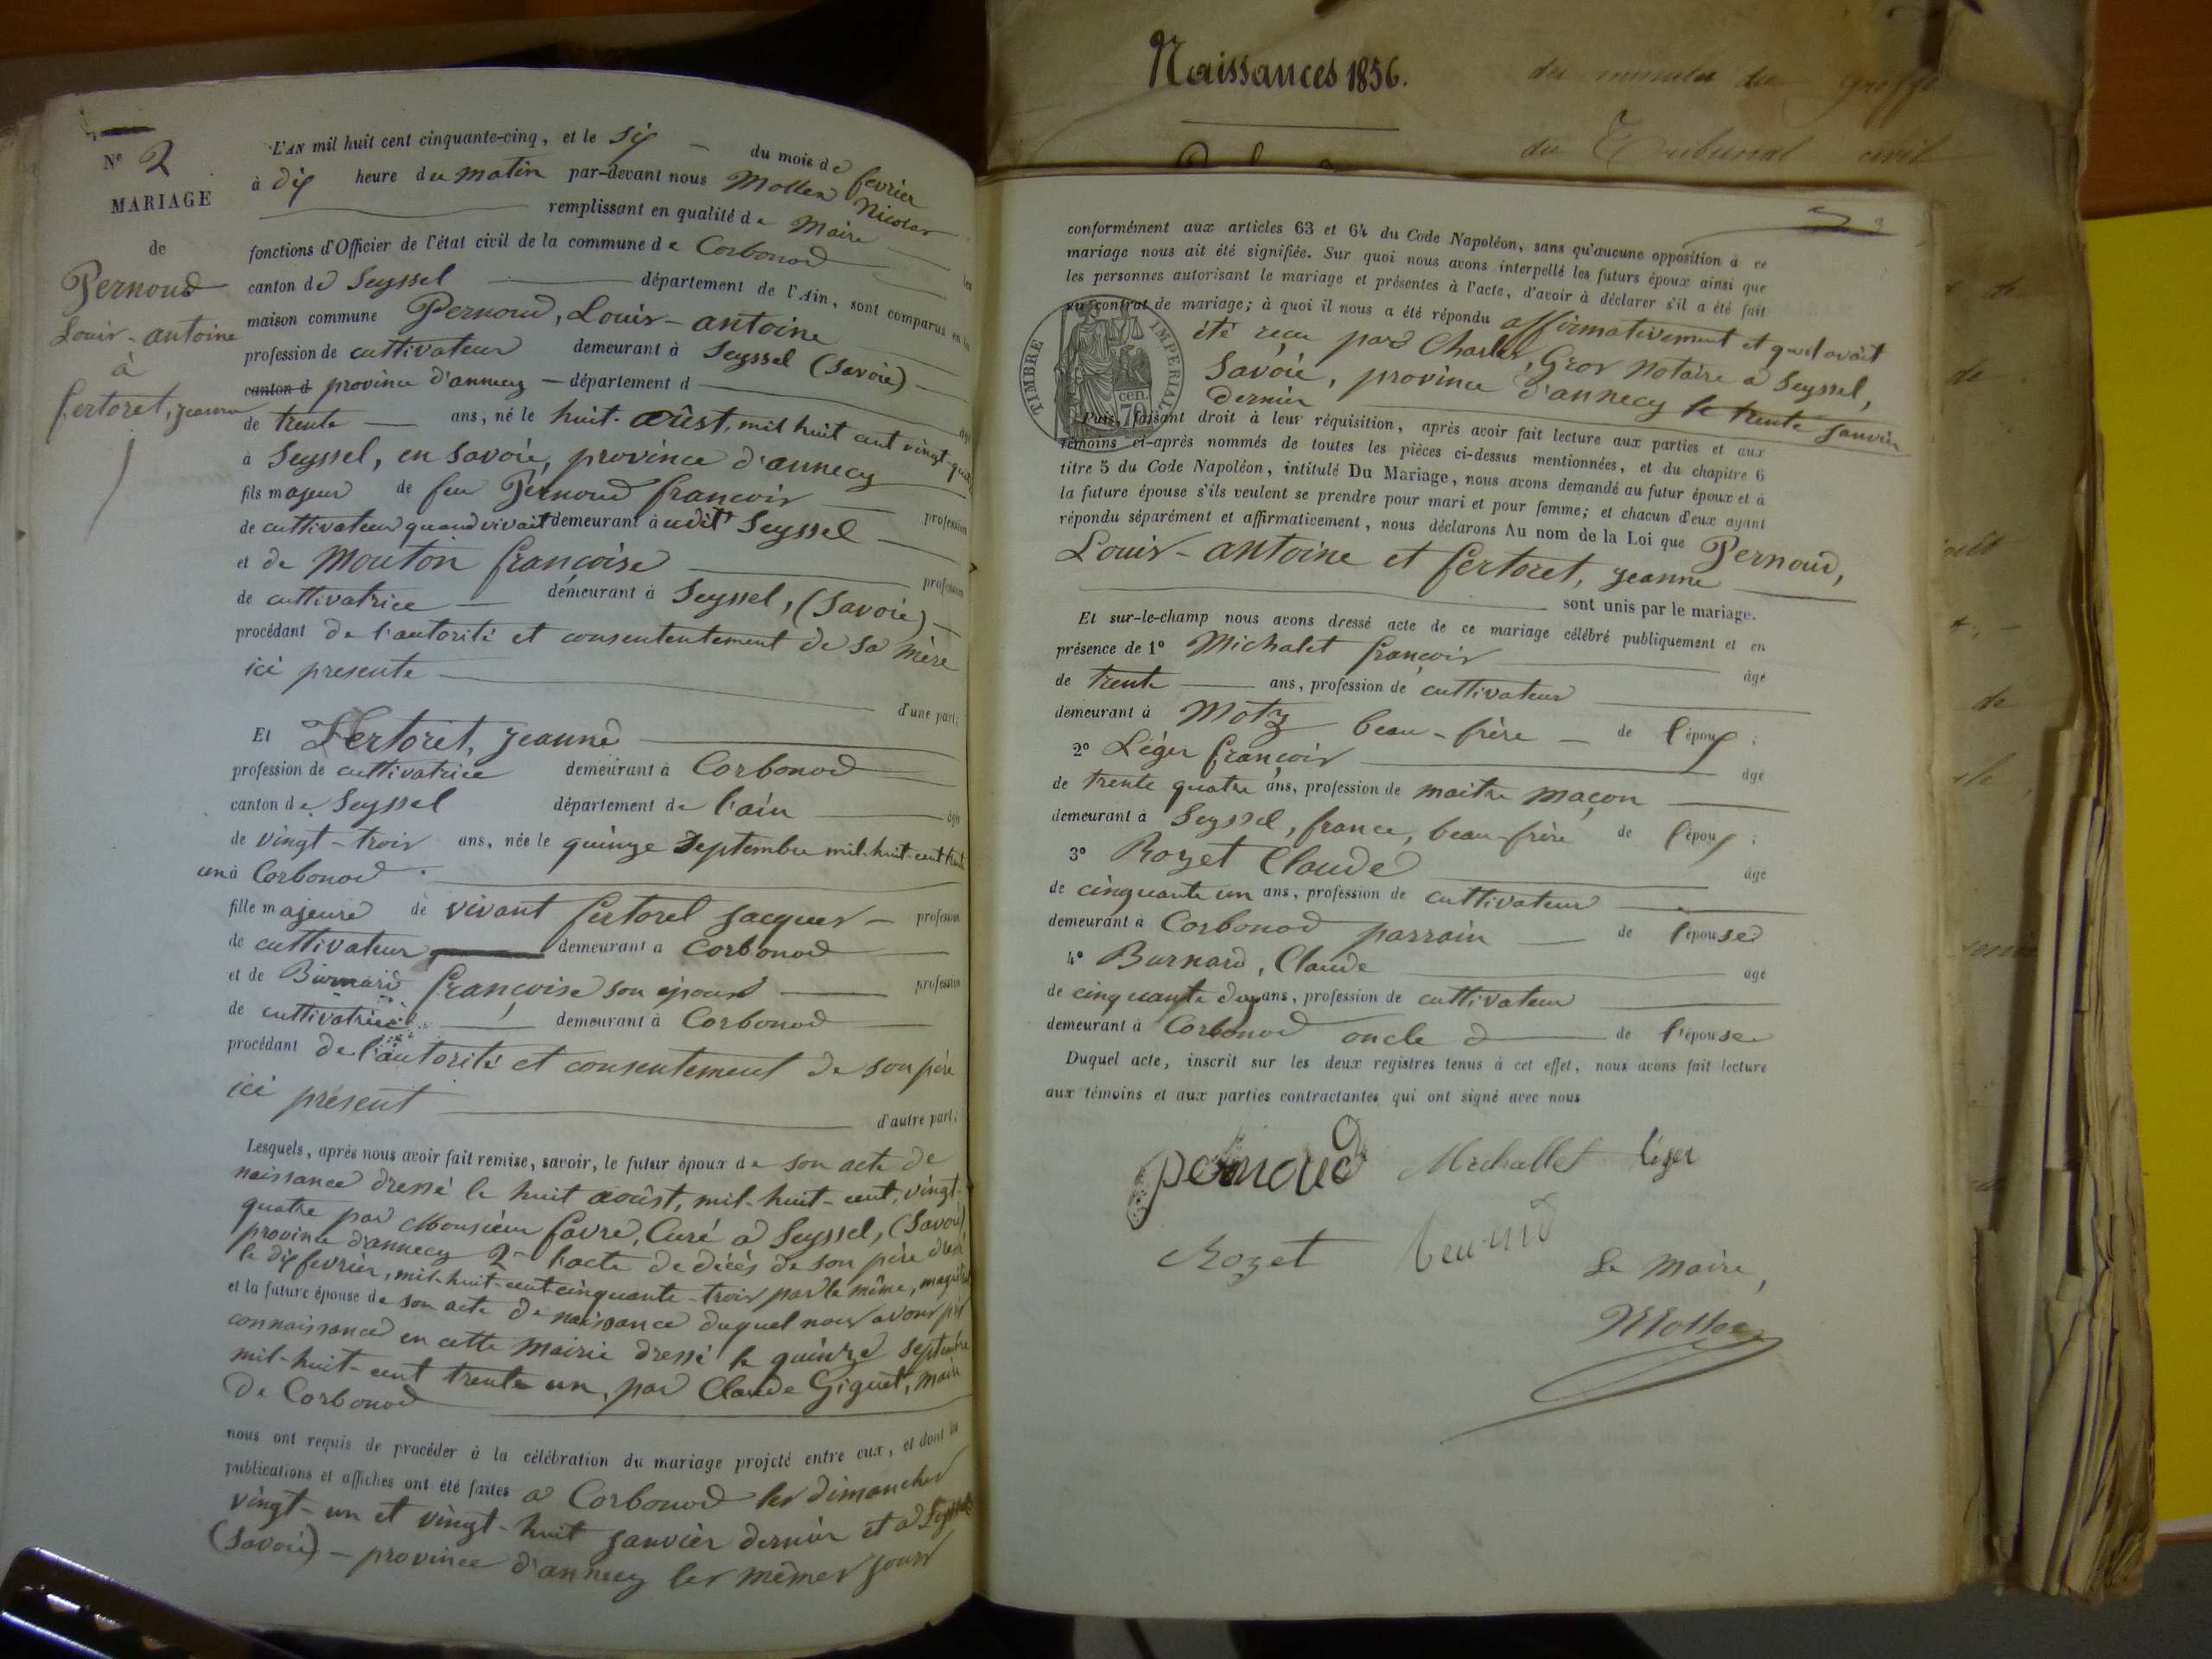 N° 2
MARIAGE
de
Pernoud
Louis-antoine
à
fertoret, jeanne
L'AN mil huit cent cinquante-cinq, et le six du mois de fevrier
à dix heure du matin par-devant nous Mollex Nicolas
remplissant en qualité de Maire les
fonctions d'Officier de l'état civil de la commune de Corbonod
canton de Seyssel département de l'Ain, sont comparus en la
maison commune Pernoud, Louis-antoine
profession de cultivateur demeurant à Seyssel (Savoie)
canton d province d'annecy département d agé
de trente ans, né le huit août, mil huit cent vingt-quatre
à Seyssel, en Savoie, province d'annecy
fils majeur de feu Pernoud françois profession
de cultivateur quand vivait demeurant à udit Seyssel
et de Mouton françoise profession
de cultivatrice demeurant à Seyssel, (Savoie)
procédant de l'autorité et consententement de sa mère
ici presente
d'une part;
Et Fertoret, jeanne
profession de cultivatrice demeurant à Corbonod
canton de Seyssel département de l'ain agée
de vingt-trois ans, née le quinze Septembre mil-huit-cent trente
un à Corbonod
fille majeure de vivant fertoret jacques profession
de cultivateur demeurant à Corbonod
et de françoise son épouse profession
de cultivatrice demeurant à Corbonod
procédant de l'autorité et consentement de son père
ici présent
d'autre part;
Lesquels, après nous avoir fait remise, savoir, le futur époux de son acte de
naissance dressé le huit août, mil-huit-cent, vingt-
quatre par Monsieur favre, Curé à Seyssel, (Savoie)
province d'annecy 2° l'acte de décès de son père dressé
le dix fevrier, mil-huit-cent cinquante-trois par le même,
et la future épouse de son acte de naissance duquel nous avons pris
connaissance en cette Mairie dressé le quinze septembre
mil-huit-cent trente un, par Claude Giguet, maire
de Corbonod
nous ont requis de procéder à la célébration du mariage projeté entre eux, et dont les
publications et affiches ont été faites à Corbonod les dimanches
vingt-un et vingt-huit janvier dernier et à Seyssel
(Savoie) - province d'annecy les mêmes jours
Naissances 1856.
des minutes du greffe
du Tribunal civil
conformément aux articles 63 et 64 du Code Napoléon, sans qu'aucune opposition à ce
mariage nous ait été signifiée. Sur quoi nous avons interpellé les futurs époux ainsi que
les personnes autorisant le mariage et présentes à l'acte, d'avoir à déclarer s'il a été fait
un contrat de mariage; à quoi il nous a été répondu affirmativement et qu'il avait
été reçu par Charles, Gros notaire à Seyssel,
Savoie, province d'annecy le trente janvier
dernier
TIMBRE IMPERIAL
70 cen.
Puis, faisant droit à leur réquisition, après avoir fait lecture aux parties et aux
témoins ci-après nommés de toutes les pièces ci-dessus mentionnées, et du chapitre 6
titre 5 du Code Napoléon, intitulé Du Mariage, nous avons demandé au futur époux et à
la future épouse s'ils veulent se prendre pour mari et pour femme; et chacun d'eux ayant
répondu séparément et affirmativement, nous déclarons Au nom de la Loi que Pernoud,
Louis-antoine et fertoret, jeanne
sont unis par le mariage.
Et sur-le-champ nous avons dressé acte de ce mariage célébré publiquement et en
présence de 1° Michalet françois âgé
de trente ans, profession de cultivateur
demeurant à Motz beau-frère de l'époux;
2° Léger françois âgé
de trente quatre ans, profession de maitre maçon
demeurant à Seyssel, france, beau-frère de l'époux;
3° Rozet Claude âgé
de cinquante un ans, profession de cultivateur
demeurant à Corbonod parrain de l'épouse
4° Burnard, Claude âgé
de cinquante deux ans, profession de cultivateur
demeurant à Corbonod oncle d de l'épouse
Duquel acte, inscrit sur les deux registres tenus à cet effet, nous avons fait lecture
aux témoins et aux parties contractantes qui ont signé avec nous
pernoud Michallet léger
Rozet
Le Maire,
Mollex